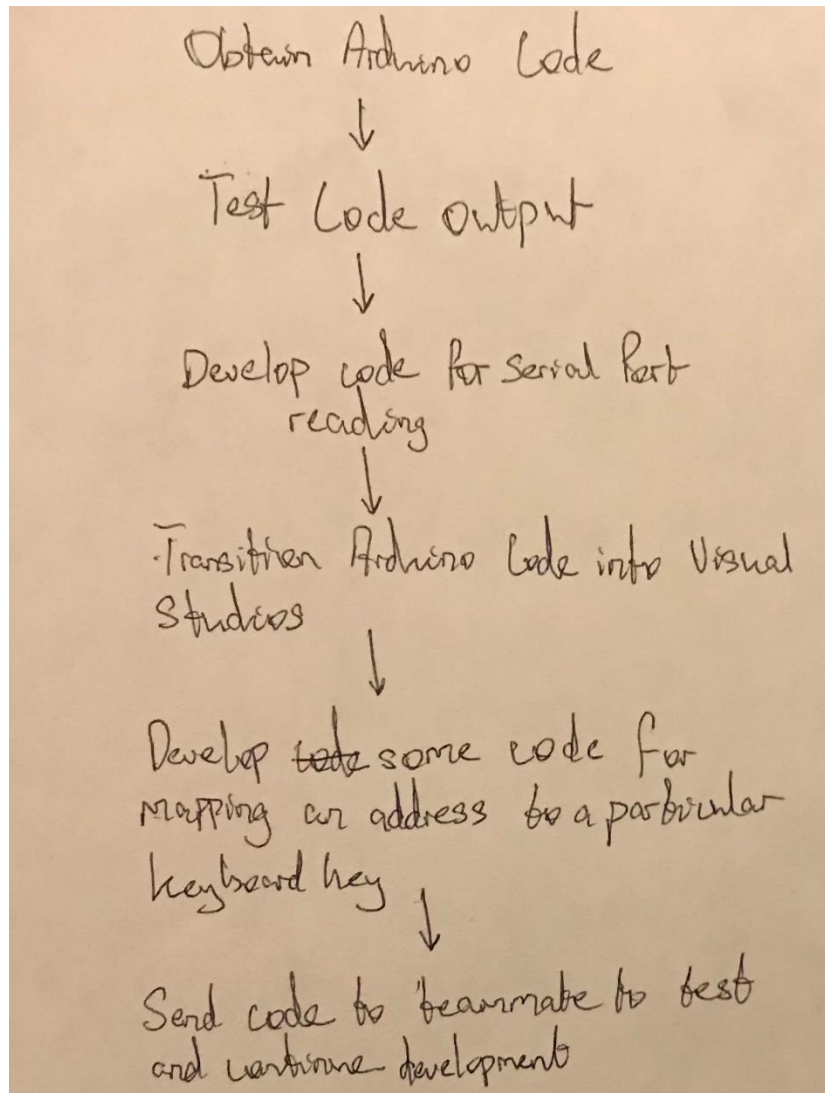 Obtain Arduino Code
↓
Test Code output
↓
Develop code for Serial Port
reading
↓
Transition Arduino Code into Visual
Studios
↓
Develop code some code for
mapping an address to a particular
keyboard key
↓
Send code to teammate to test
and continue development